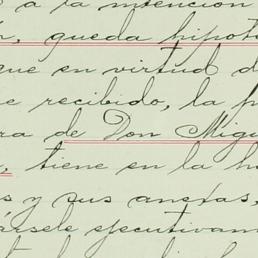 a la intención
, queda hipot
que en virtud d
e recibido, la p
ra de Don Migu
, tiene en la h
s y sus anexas,
ársele ejecutivam